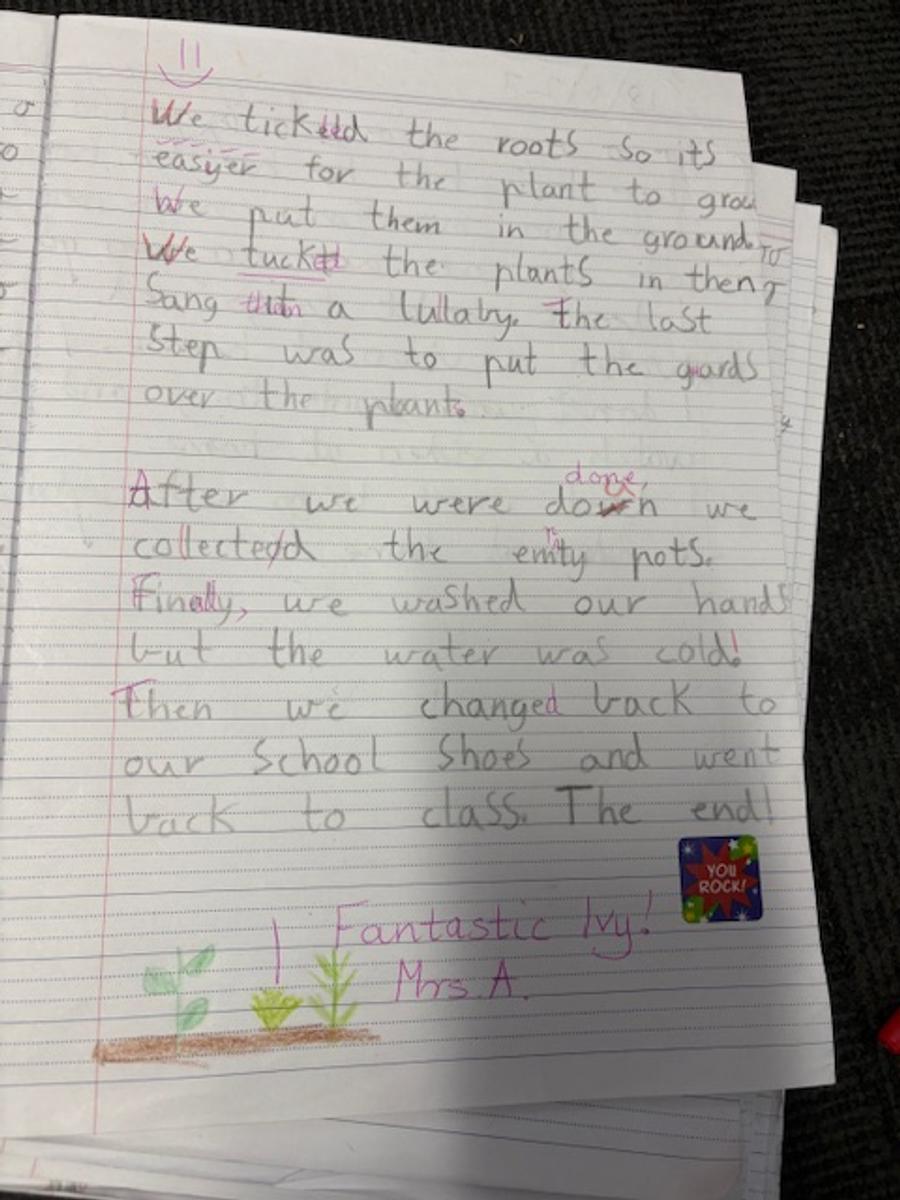 We tickled the roots so its
easyer for the plant to grow
We put them in the ground. To
We tucked the plants in then
Sang them a lullaby. The last
Step was to put the gards
over the plants.
done,
After we were down we
collected the emty pots.
Finally, we washed our hands
but the water was cold!
Then we changed back to
our School Shoes and went
back to class. The end!
YOU
ROCK!
Fantastic Ivy!
Mrs. A.